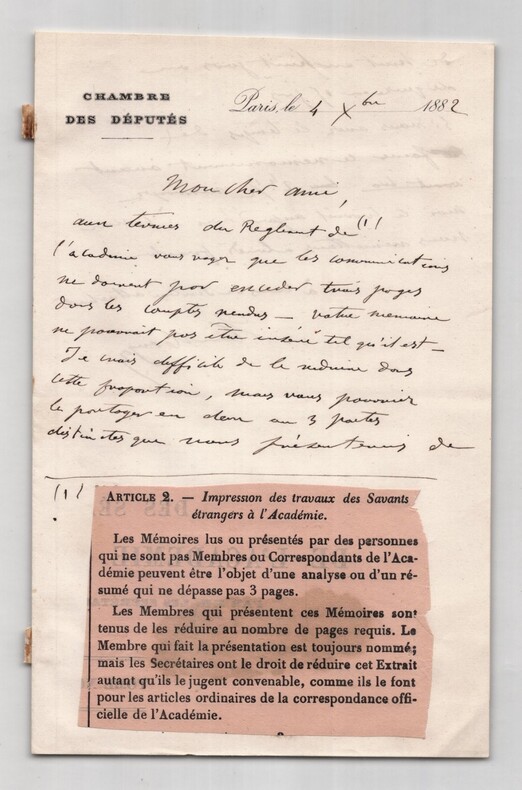 CHAMBRE
DES DÉPUTÉS
Paris, le 4 Xbre 1882
Mon cher ami,
aux termes du Reglement de (1)
l'academie vous voyez que les communications
ne doivent pas exceder trois pages
dans les comptes rendus — votre memoire
ne pouvait pas être inséré tel qu'il est —
Je crois difficile de le reduire dans
cette proportion, mais vous pouvez
le partager en deux ou 3 parties
distinctes que nous présenterons de
(1)
ARTICLE 2. — Impression des travaux des Savants
étrangers à l'Académie.
Les Mémoires lus ou présentés par des personnes
qui ne sont pas Membres ou Correspondants de l'Aca-
démie peuvent être l'objet d'une analyse ou d'un ré-
sumé qui ne dépasse pas 3 pages.
Les Membres qui présentent ces Mémoires sont
tenus de les réduire au nombre de pages requis. Le
Membre qui fait la présentation est toujours nommé;
mais les Secrétaires ont le droit de réduire cet Extrait
autant qu'ils le jugent convenable, comme ils le font
pour les articles ordinaires de la correspondance offi-
cielle de l'Académie.